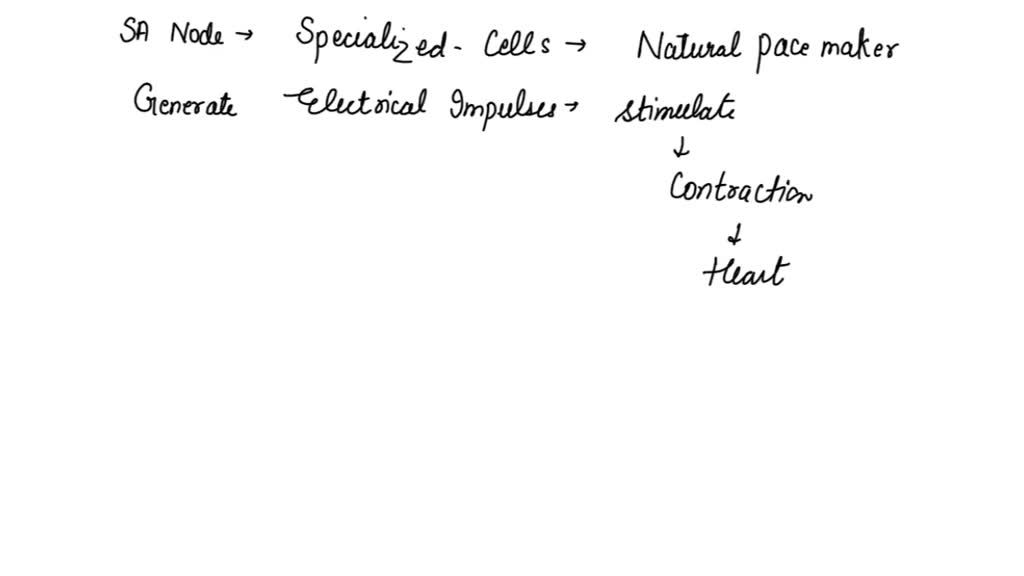 SA Node → Specialized - Cells → Natural pace maker
Generate Electrical Impulses → stimulate
↓
Contraction
↓
Heart